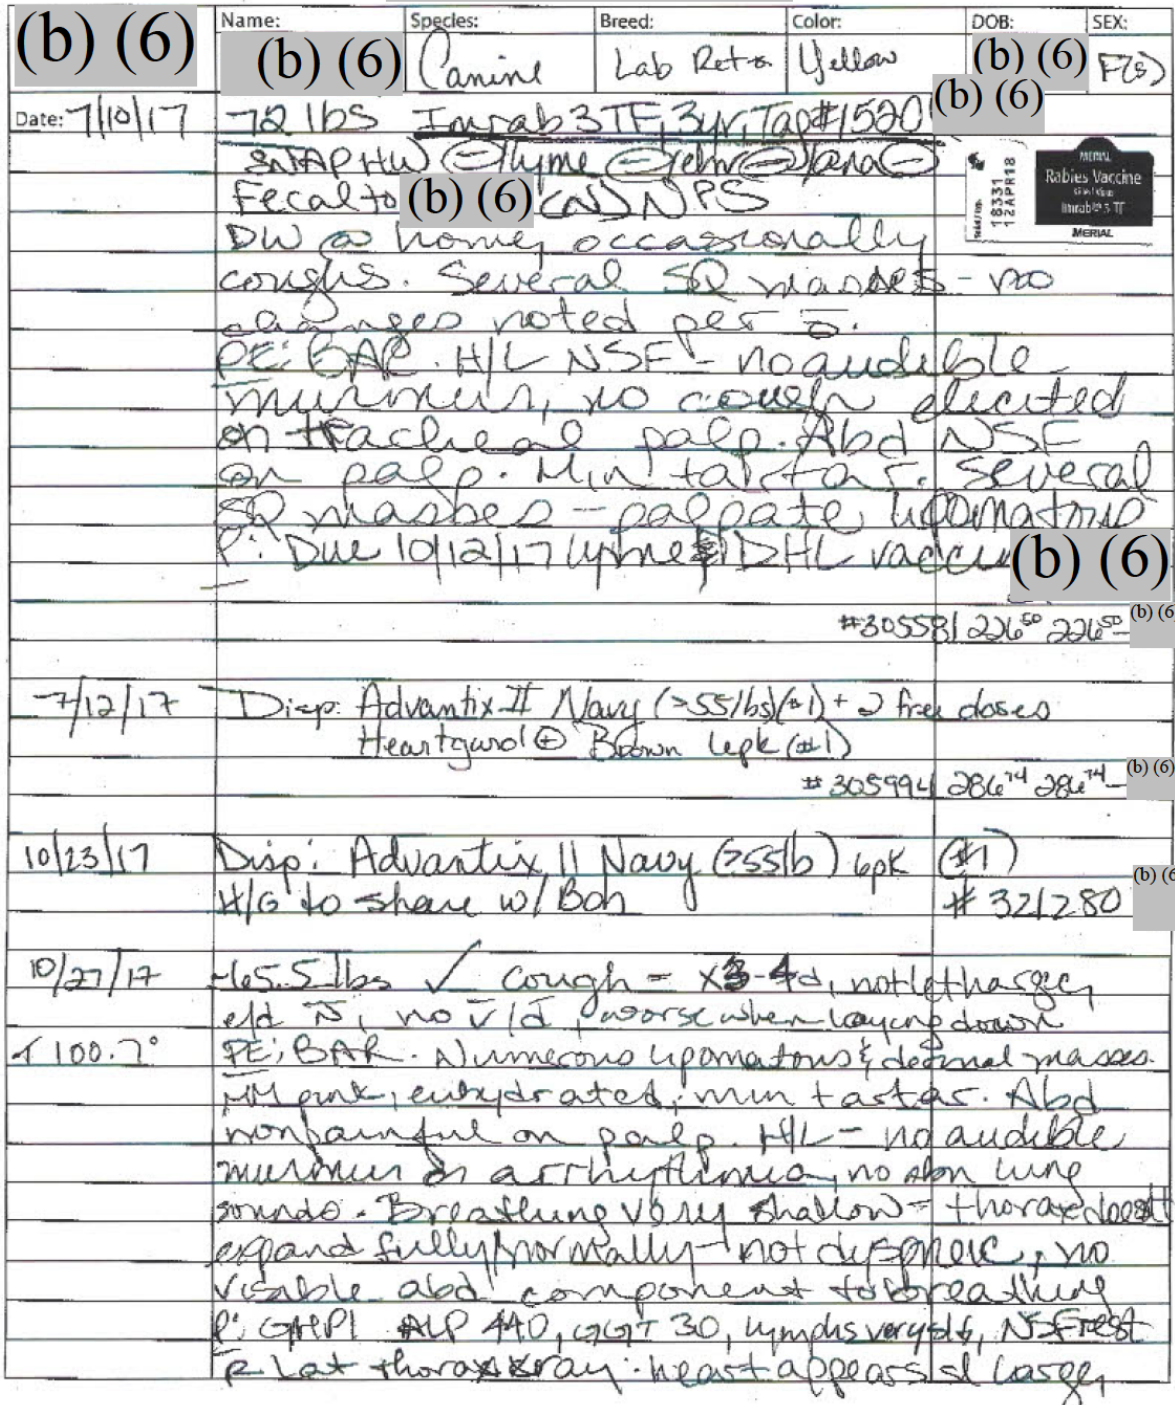 (b) (6)
Name: Species: Breed: Color: DOB: SEX:
(b) (6) Canine Lab Retr Yellow (b) (6) F(s)
(b) (6)
Date: 7/10/17 72 lbs Imrab 3 TF, 3yr, Tag#1520
SNAP HW ⊖ Lyme ⊖ ehr ⊖ ana ⊖
MERIAL
Rabies Vaccine
Imrab® 3 TF
MERIAL
18331
12APR18
Fecal to (b) (6) NPS
DW @ home, occassionally
coughs. Several SQ masses - no
changes noted per o.
PE: BAR. H/L NSF - no audible
murmur, no cough elicited
on tracheal palp. Abd NSF
on palp. Min tartar. Several
SQ masses - palpate lipomatous
P: Due 10/12/17 Lyme & DHL (b) (6)
#305581 226⁵⁰ 226⁵⁰ (b) (6)
7/12/17 Disp: Advantix II Navy (>55lbs)(#1) + 2 free doses
Heartgard ⊕ Brown 6pk (#1)
#305994 286⁷⁴ 286⁷⁴ (b) (6)
10/23/17 Disp: Advantix II Navy (>55lb) 6pk (#1)
H/G to share w/ Boh #321280 (b) (6)
10/27/17 65.5 lbs ✓ cough = x3-4d, not lethargic,
e/d N, no v/d, worse when laying down
T 100.7° PE: BAR. Numerous lipomatous & dermal masses.
MM pink, euhydrated, min tartar. Abd
nonpainful on palp. H/L - no audible
murmur or arrhythmia, no abn lung
sounds. Breathing very shallow = thorax doesn't
expand fully/normally - not dyspneic, no
visible abd component to breathing
P: GHP1 ALP 440, GGT 30, lymphs very sl ↓, NSF rest
R Lat thorax xray: heart appears sl large,